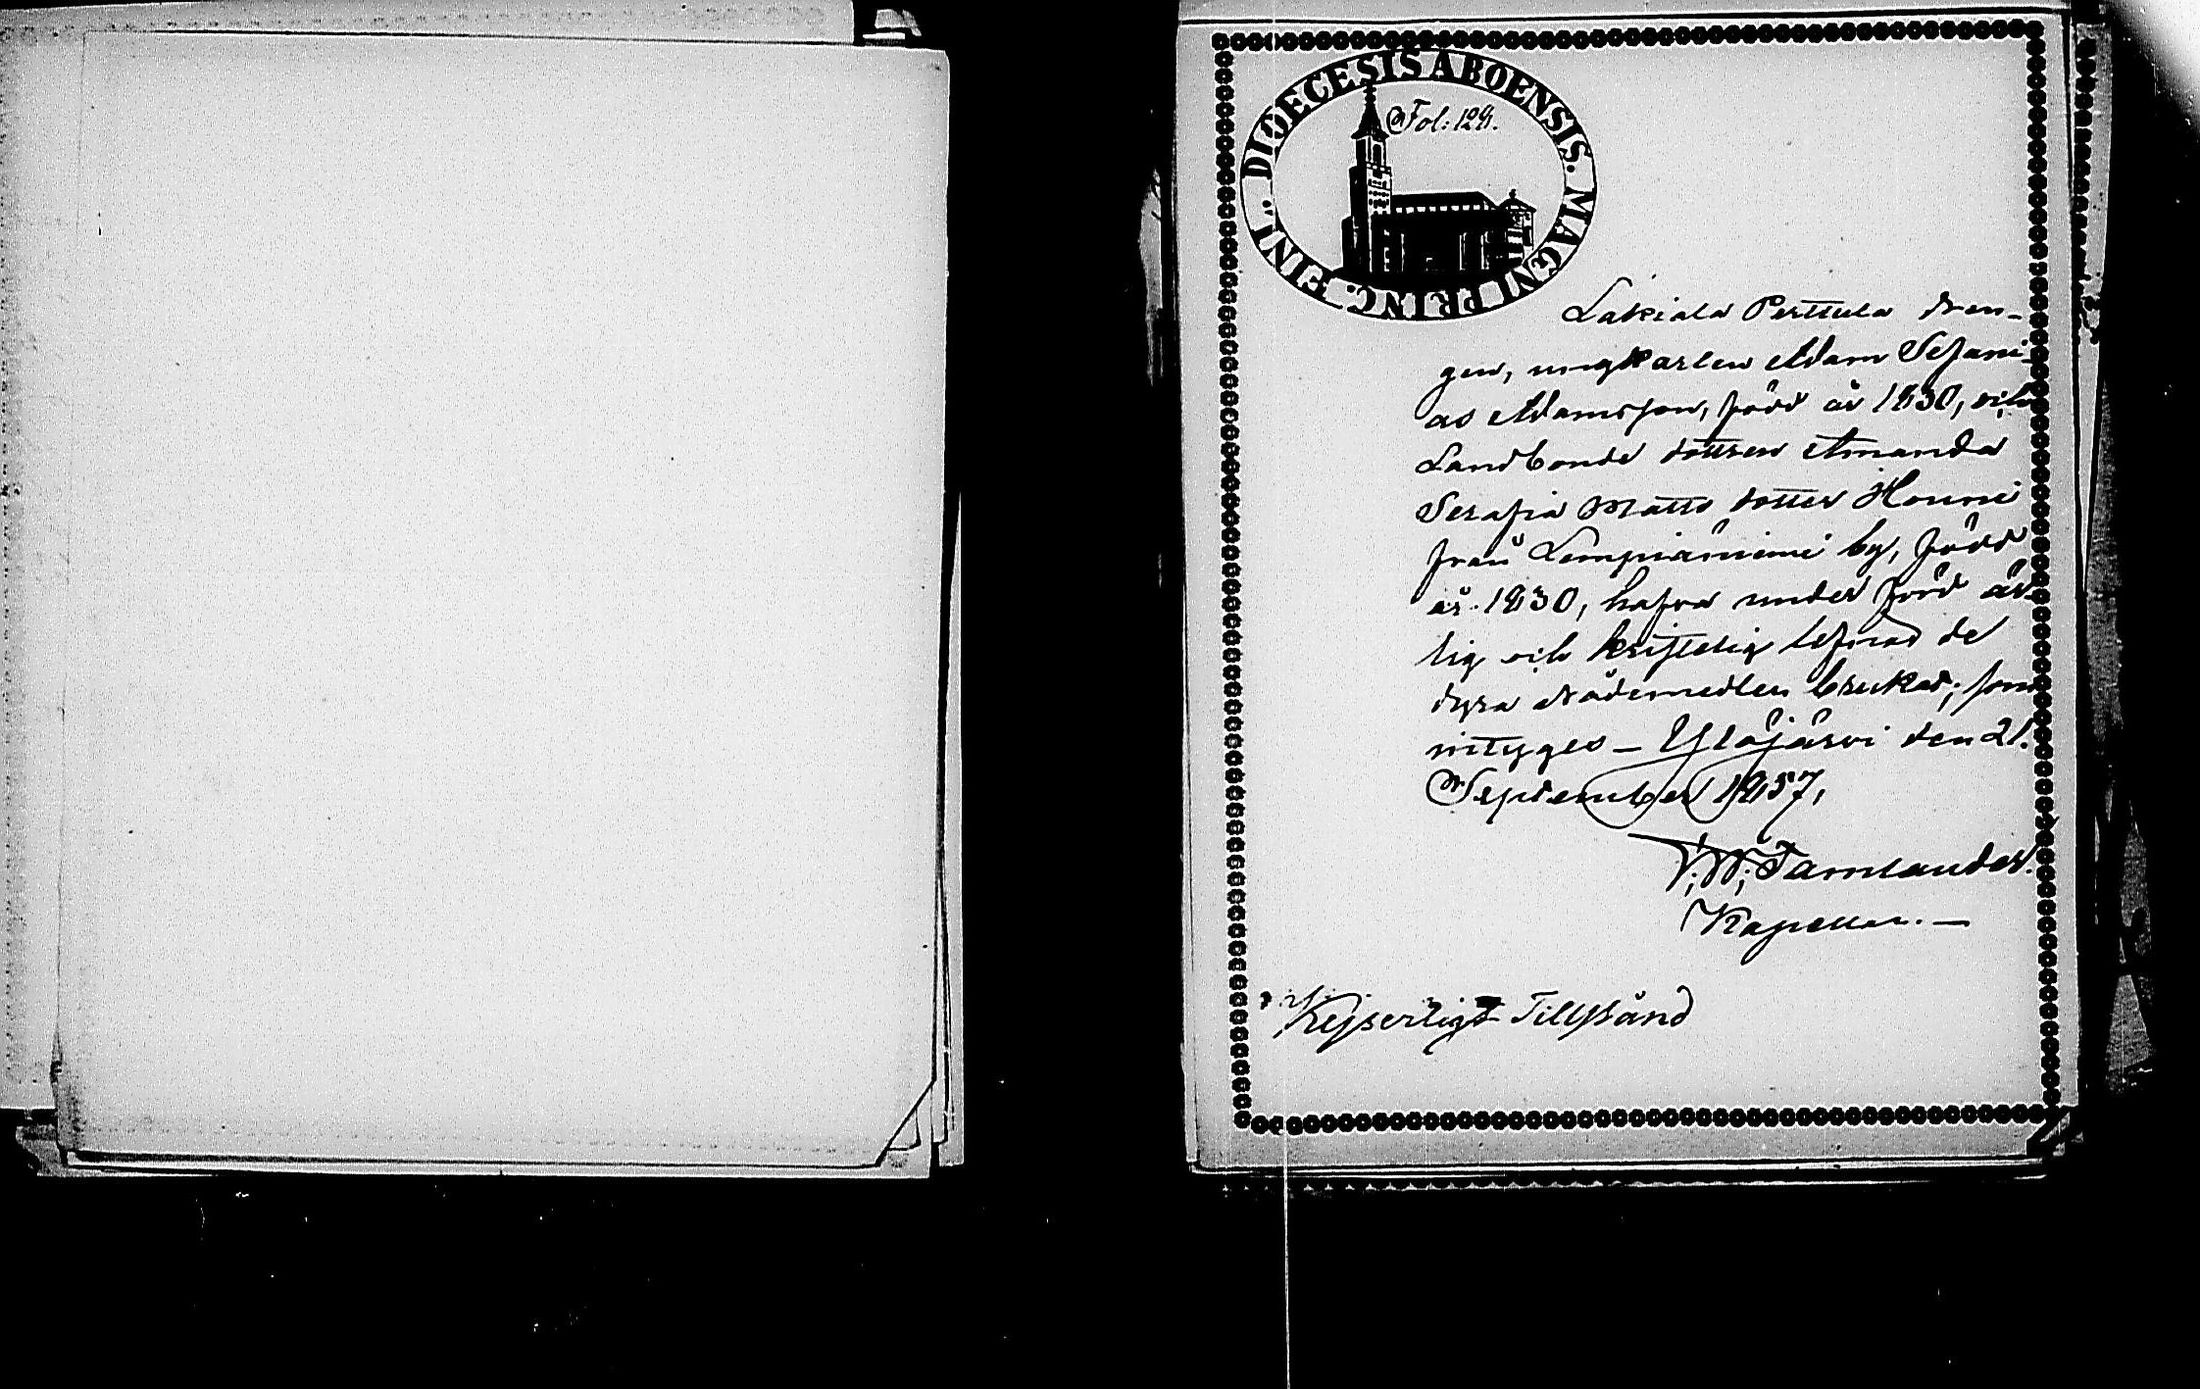 DIOECESIS ABOENSIS. MAGNI PRINC. FINL.
Fol: 128.
Lakiala Perttula dren-
gen, ungkarlen Adam Sefani-
as Adamsson, född år 1830, och
Landbonde dottren Amanda
Serafia Matts dotter Honni
från Lempiäniemi by, född
år 1830, hafva under förd är-
lig och kristelig lefnad de
dyra nådemedlen brukat; som
intygges – Ylöjärvi den 21.
September 1857,
V: W: Tamlander.
Kapellan. –
Kejserligt Tillstånd